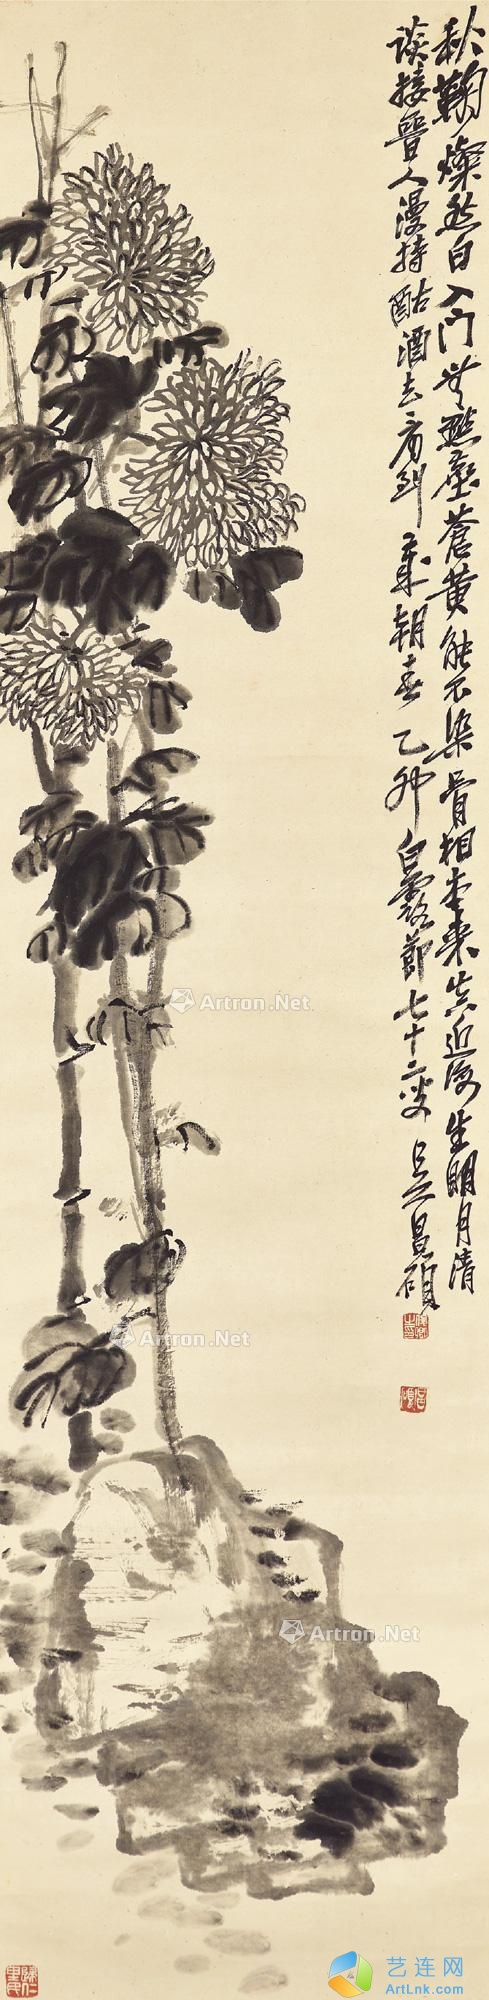 秋鞠燦然白入門無點塵蒼黃能不染骨相本來真近海生明月清
談接晉人漫持酤酒去看到義朝春乙卯白露節七十二叟吳昌碩
Artron.Net
Artron.Net
Artron.Net
归仁里民
艺连网
ArtLnk.com